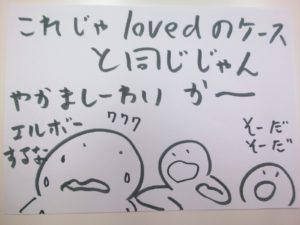 これじゃlovedのケース
と同じじゃん
やかましーわりかー
エルボー
するな
ククク
そーだ
そーだ